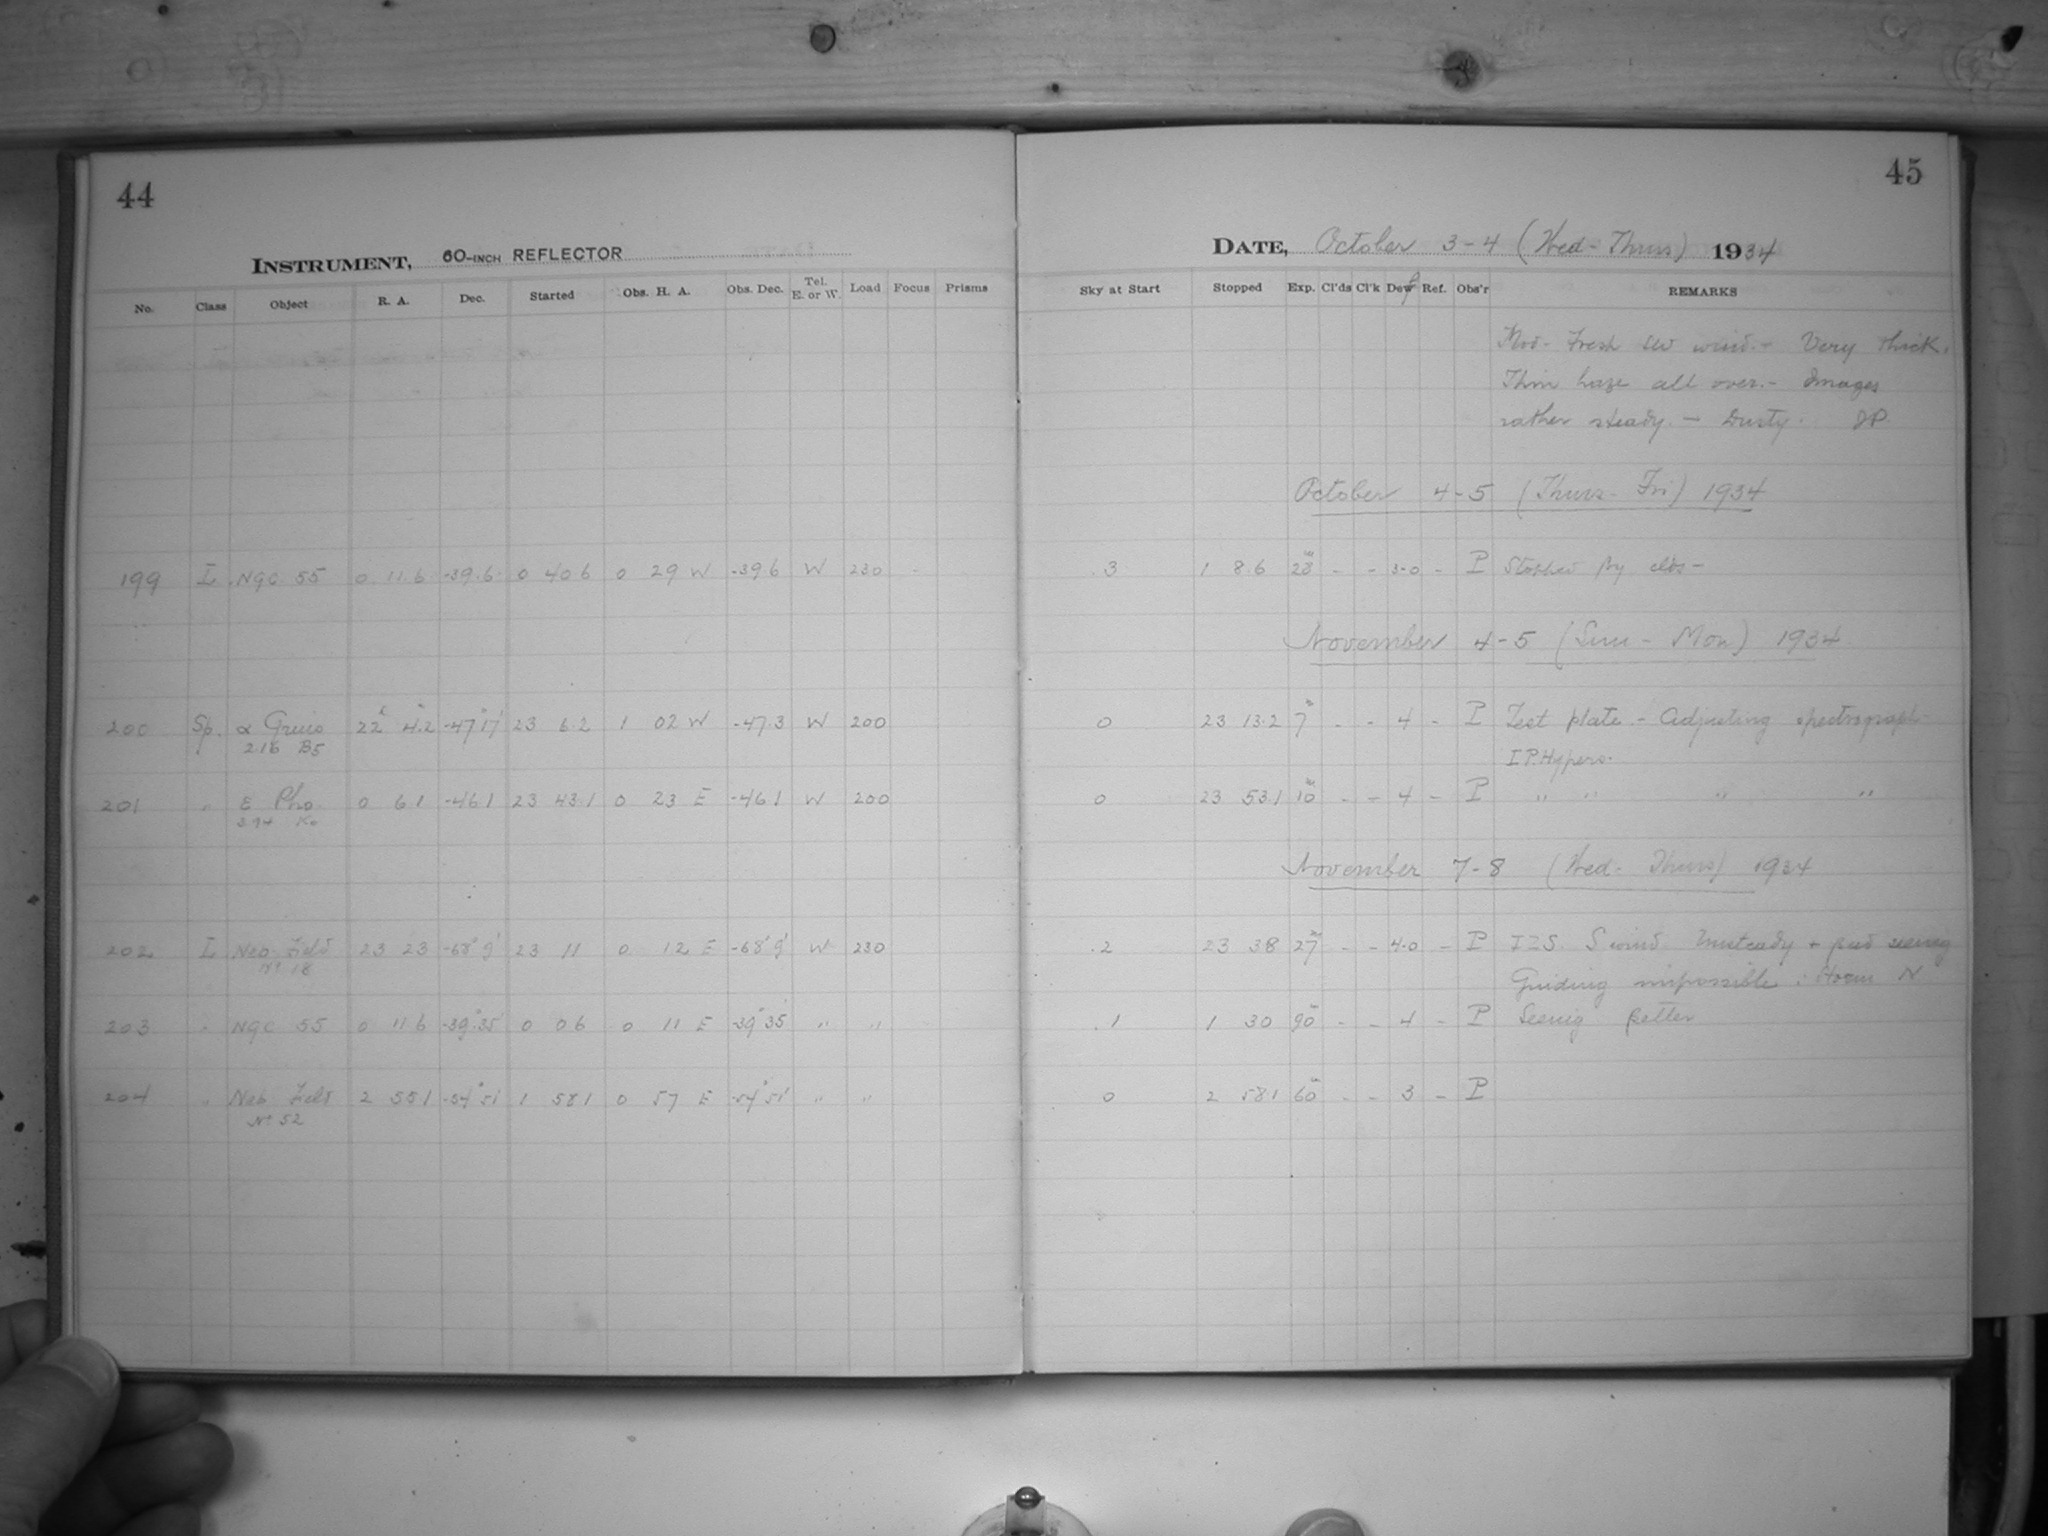 44
INSTRUMENT, 60-INCH REFLECTOR
No. Class Object R. A. Dec. Started Obs. H. A. Obs. Dec. Tel. E. or W. Load Focus Prisms
199 I NGC 55 0 11.6 -39.6 0 40.6 0 29 W -39.6 W 230 -
200 Sp. α Gruis 22 4.2 -47°17' 23 6.2 1 02 W -47.3 W 200
2.16 B5
201 " ε Pho 0 6.1 -46.1 23 43.1 0 23 E -46.1 W 200
3.94 Ko
202 I Neb. Field 23 23 -68°9' 23 11 0 12 E -68°9' W 230
No 18
203 " NGC 55 0 11.6 -39°35' 0 0.6 0 11 E -39°35' " "
204 " Neb Field 2 55.1 -54°51' 1 58.1 0 57 E -54°51' " "
No 52
45
DATE, October 3-4 (Wed-Thurs) 1934
Sky at Start Stopped Exp. Cl'ds Cl'k Dew Ref. Obs'r REMARKS
Mod- Fresh SW wind.- Very thick.
Thin haze all over.- Images
rather steady. - Dusty. JP.
October 4-5 (Thurs- Fri) 1934
.3 1 8.6 28 - - 3.0 - P Stopped by clds-
November 4-5 (Sun - Mon) 1934
0 23 13.2 7 - - 4 - P Test plate - Adjusting spectrograph
I P.Hypers.
0 23 53.1 10 - - 4 - P " " " "
November 7-8 (Wed- Thurs) 1934
.2 23 38 27 - - 4.0 - P S wind. Unsteady + bad seeing
Guiding impossible. Storm N
.1 1 30 90 - - 4 - P Seeing better
0 2 58.1 60 - - 3 - P